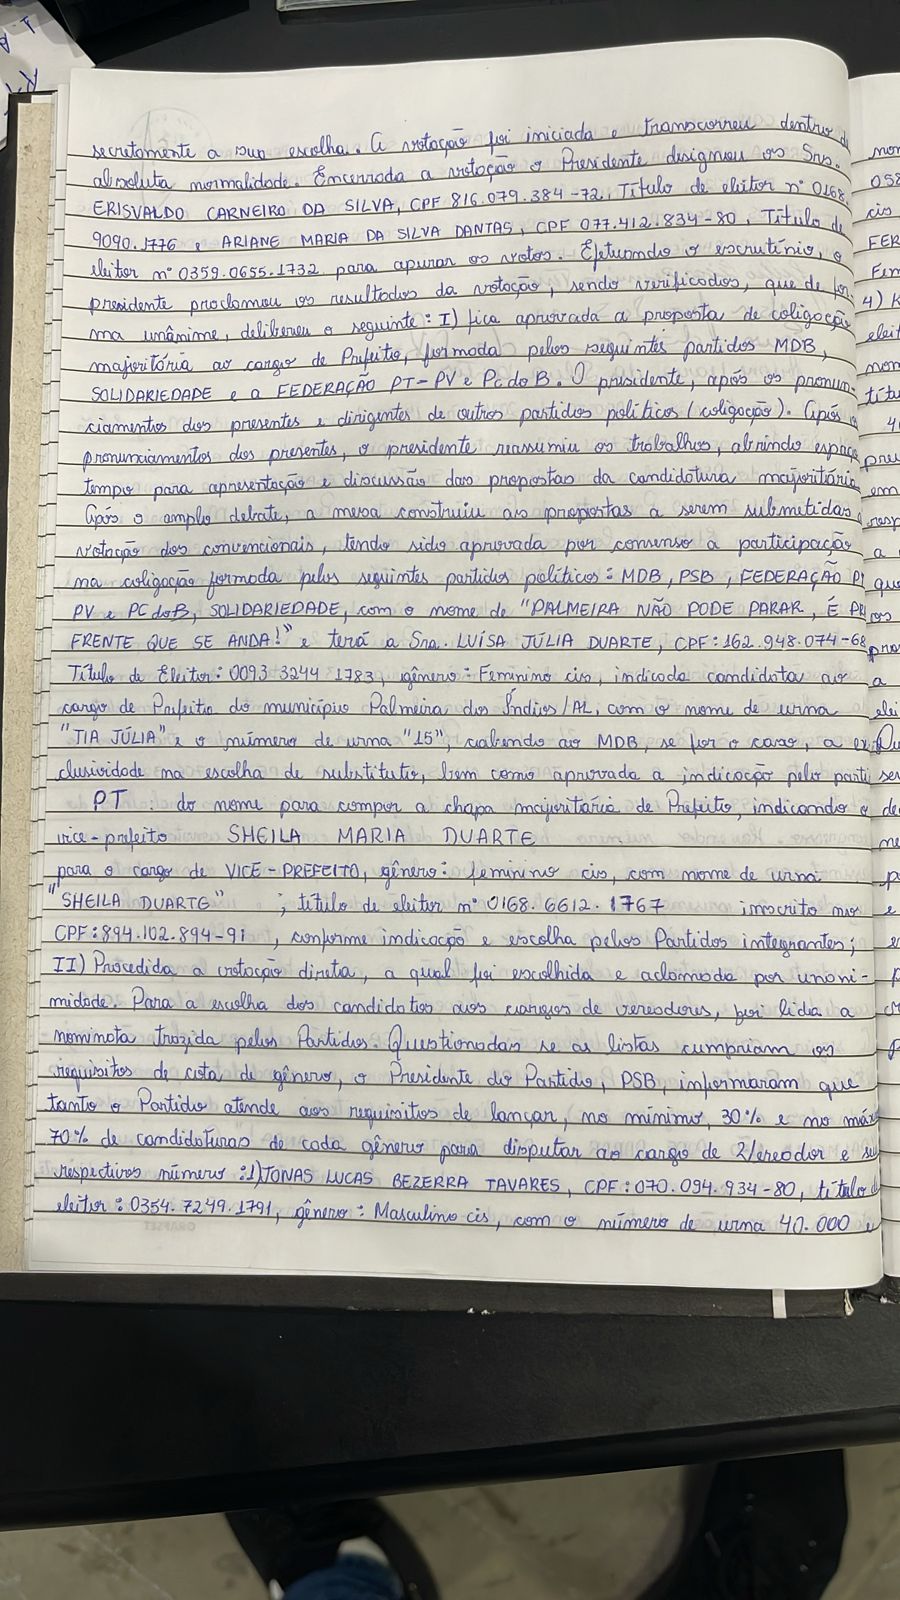 secretamente a sua escolha. A votação foi iniciada e transcorreu dentro d
absoluta normalidade. Encerrada a votação o Presidente designou os Srs.
ERISVALDO CARNEIRO DA SILVA, CPF 816.079.384-72, Título de eleitor nº 0168.
9090.1776 e ARIANE MARIA DA SILVA DANTAS, CPF 077.412.834-80, Título de
eleitor nº 0359.0655.1732 para apurar os votos. Efetuando o escrutínio, o
presidente proclamou os resultados da votação, sendo verificados, que de for-
ma unânime, deliberou o seguinte: I) fica aprovada a proposta de coligação
majoritária ao cargo de Prefeito, formada pelos seguintes partidos MDB,
SOLIDARIEDADE e a FEDERAÇÃO PT-PV e PCdoB. O presidente, após os pronun-
ciamentos dos presentes e dirigentes de outros partidos políticos (coligação). Após o
pronunciamentos dos presentes, o presidente reassumiu os trabalhos, abrindo espaço
tempo para apresentação e discussão das propostas da candidatura majoritária
Após o amplo debate, a mesa construiu as propostas a serem submetidas
votação dos convencionais, tendo sido aprovada por consenso a participação
na coligação formada pelos seguintes partidos políticos: MDB, PSB, FEDERAÇÃO PT
PV e PCdoB, SOLIDARIEDADE, com o nome de "PALMEIRA NÃO PODE PARAR, É PRA
FRENTE QUE SE ANDA!" e terá a Sra. LUÍSA JÚLIA DUARTE, CPF: 162.948.074-68
Título de Eleitor: 0093 3244 1783, gênero: Feminino cis, indicada candidata ao
cargo de Prefeito do município Palmeira dos Índios/AL, com o nome de urna
"TIA JÚLIA" e o número de urna "15", cabendo ao MDB, se for o caso, a ex
clusividade na escolha de substituto, bem como aprovada a indicação pelo parti
PT do nome para compor a chapa majoritária de Prefeito, indicando o
vice-prefeito SHEILA MARIA DUARTE
para o cargo de VICE-PREFEITO, gênero: feminino cis, com nome de urna
"SHEILA DUARTE" ; título de eleitor nº 0168.6612.1767 inscrito no
CPF: 894.102.894-91, conforme indicação e escolha pelos Partidos integrantes;
II) Procedida a votação direta, a qual foi escolhida e aclamada por unani-
midade. Para a escolha dos candidatos aos cargos de vereadores, foi lida a
nominata trazida pelos Partidos. Questionadas se as listas cumpriam os
requisitos de cota de gênero, o Presidente do Partido, PSB, informaram que
tanto o Partido atende aos requisitos de lançar, no mínimo, 30% e no máx
70% de candidaturas de cada gênero para disputar ao cargo de Vereador e seu
respectivos número: 1) JONAS LUCAS BEZERRA TAVARES, CPF: 070.094.934-80, título d
eleitor: 0354.7249.1791, gênero: Masculino cis, com o número de urna 40.000 e